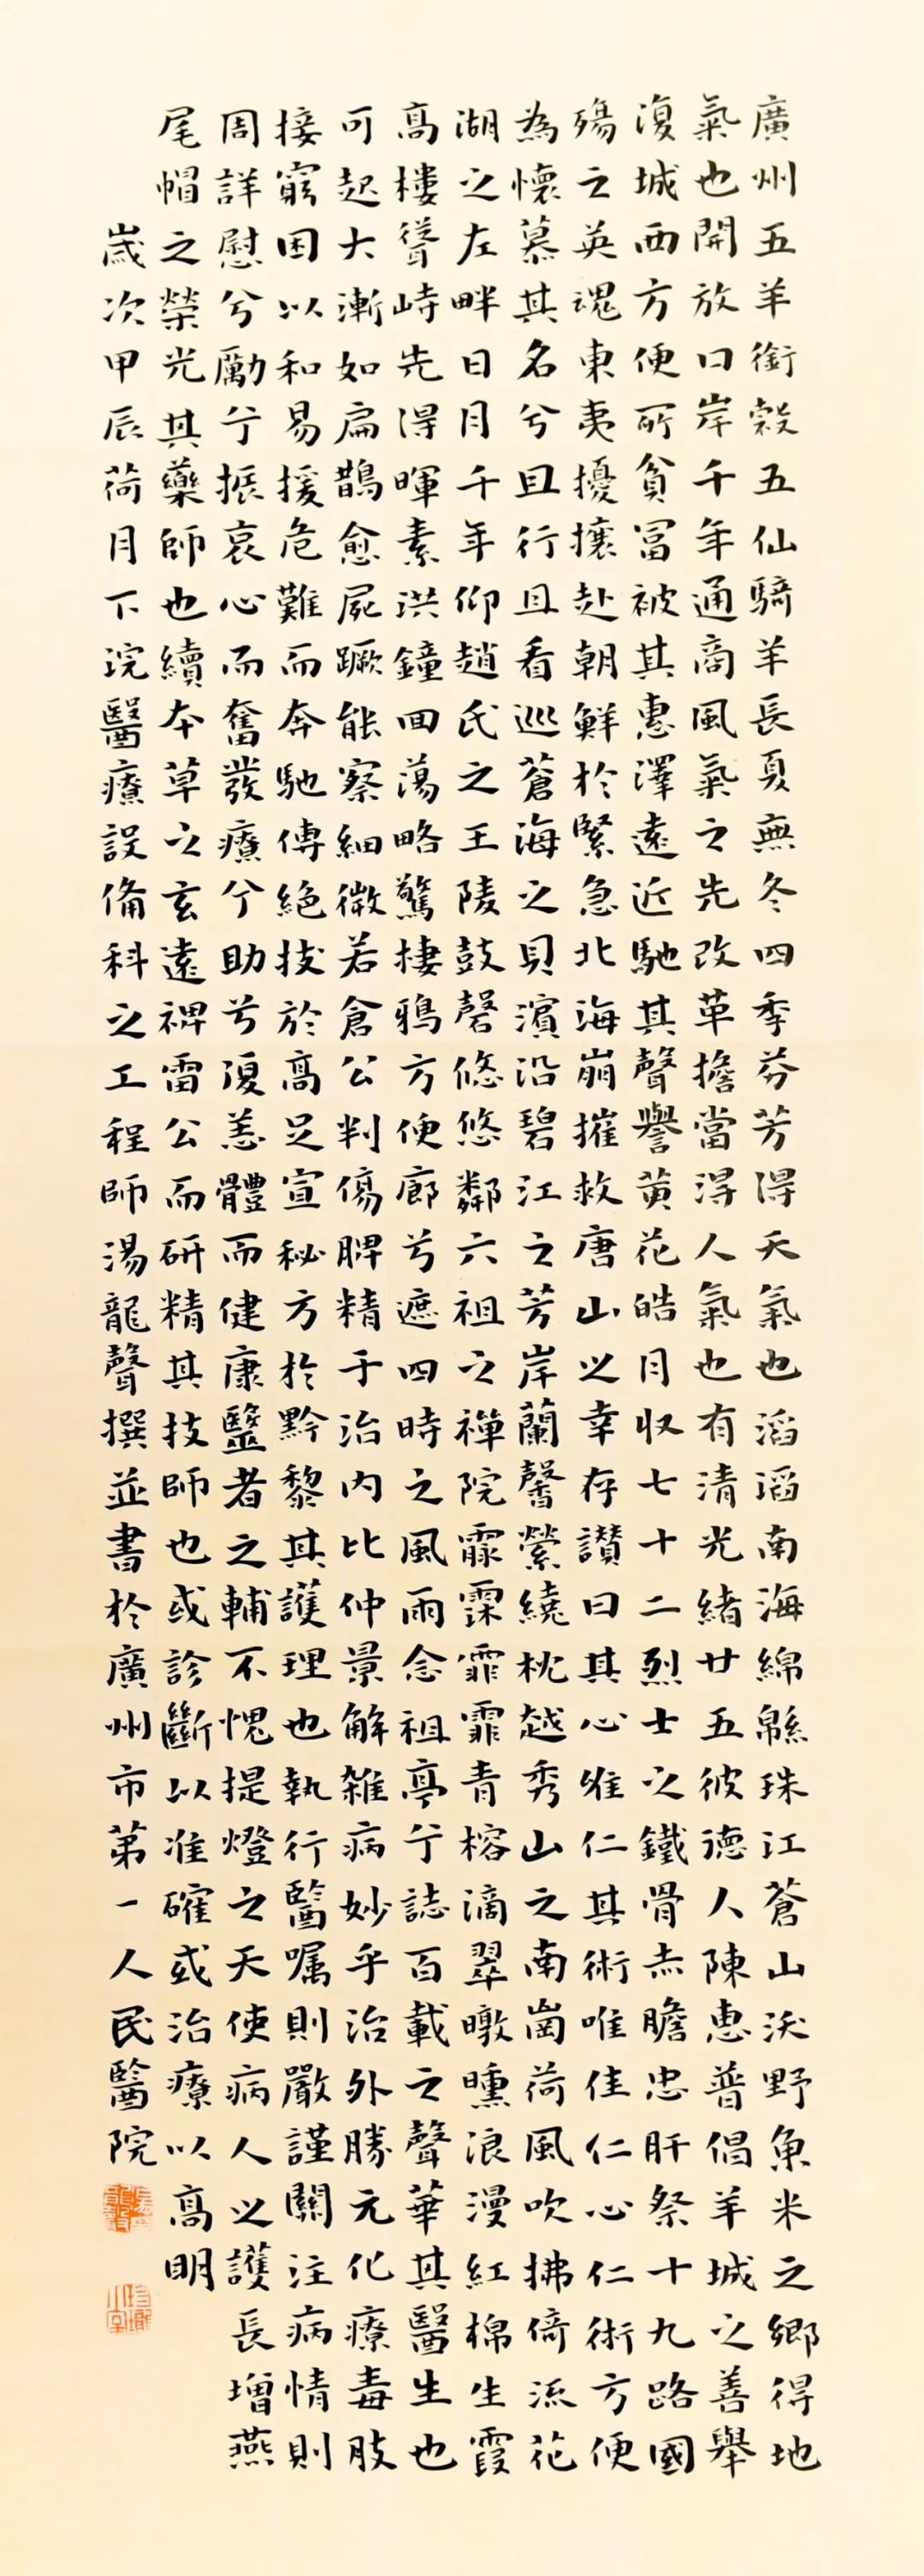 廣州五羊銜穀五仙騎羊長夏無冬四季芬芳得天氣也滔滔南海綿緜珠江蒼山沃野魚米之鄉得地
氣也開放口岸千年通商風氣之先改革擔當得人氣也有清光緒廿五彼德人陳惠普倡羊城之善舉
復城西方便所貧冨被其惠澤遠近馳其聲譽黄花皓月収七十二烈士之鐵骨赤膽忠肝祭十九路國
殤之英魂東夷擾攘赴朝鮮於緊急北海崩摧救唐山之幸存讃曰其心唯仁其術唯佳仁心仁術方便
為懷慕其名兮且行且看巡蒼海之貝濱沿碧江之芳岸蘭馨縈繞枕越秀山之南崗荷風吹拂倚流花
湖之左畔日月千年仰趙氏之王陵鼓磬悠悠鄰六祖之禪院霢霂霏霏青榕滴翠暾曛浪漫紅棉生霞
高樓聳峙先得暉素洪鐘回蕩略驚棲鴉方便廊兮遮四時之風雨念祖亭兮誌百載之聲華其醫生也
可起大漸如扁鵲愈屍蹶能察細微若倉公判傷脾精于治内比仲景解雜病妙乎治外勝元化療毒肢
接窮困以和易援危難而奔馳傳絶技於高足宣秘方於黔黎其護理也執行醫嘱則嚴謹關注病情則
周詳慰兮勵兮振哀心而奮發療兮助兮復恙體而健康毉者之輔不愧提燈之天使病人之護長增燕
尾帽之榮光其藥師也續本草之玄遠裨雷公而研精其技師也或診斷以准確或治療以高明
歲次甲辰荷月下浣醫療設備科之工程師湯龍聲撰並書於廣州市第一人民醫院